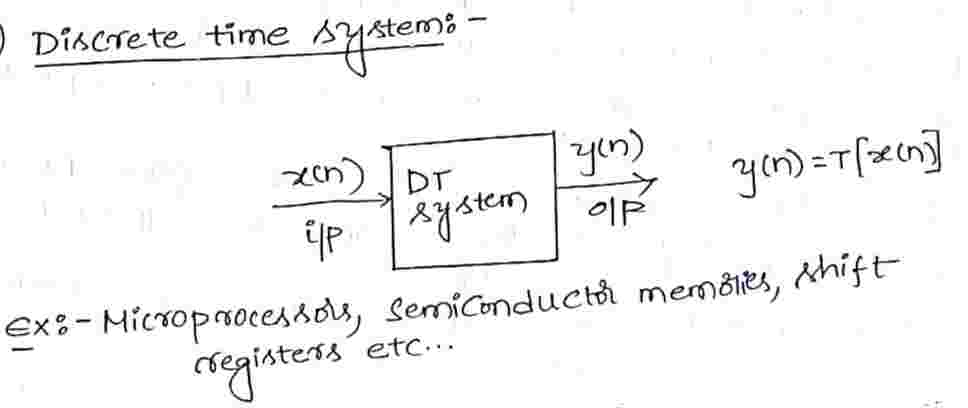 ) Discrete time system:-
x(n)
i/p
DT
system
y(n)
o/p
y(n) = T[x(n)]
Ex:- Microprocessors, semiconductor memories, shift
registers etc...